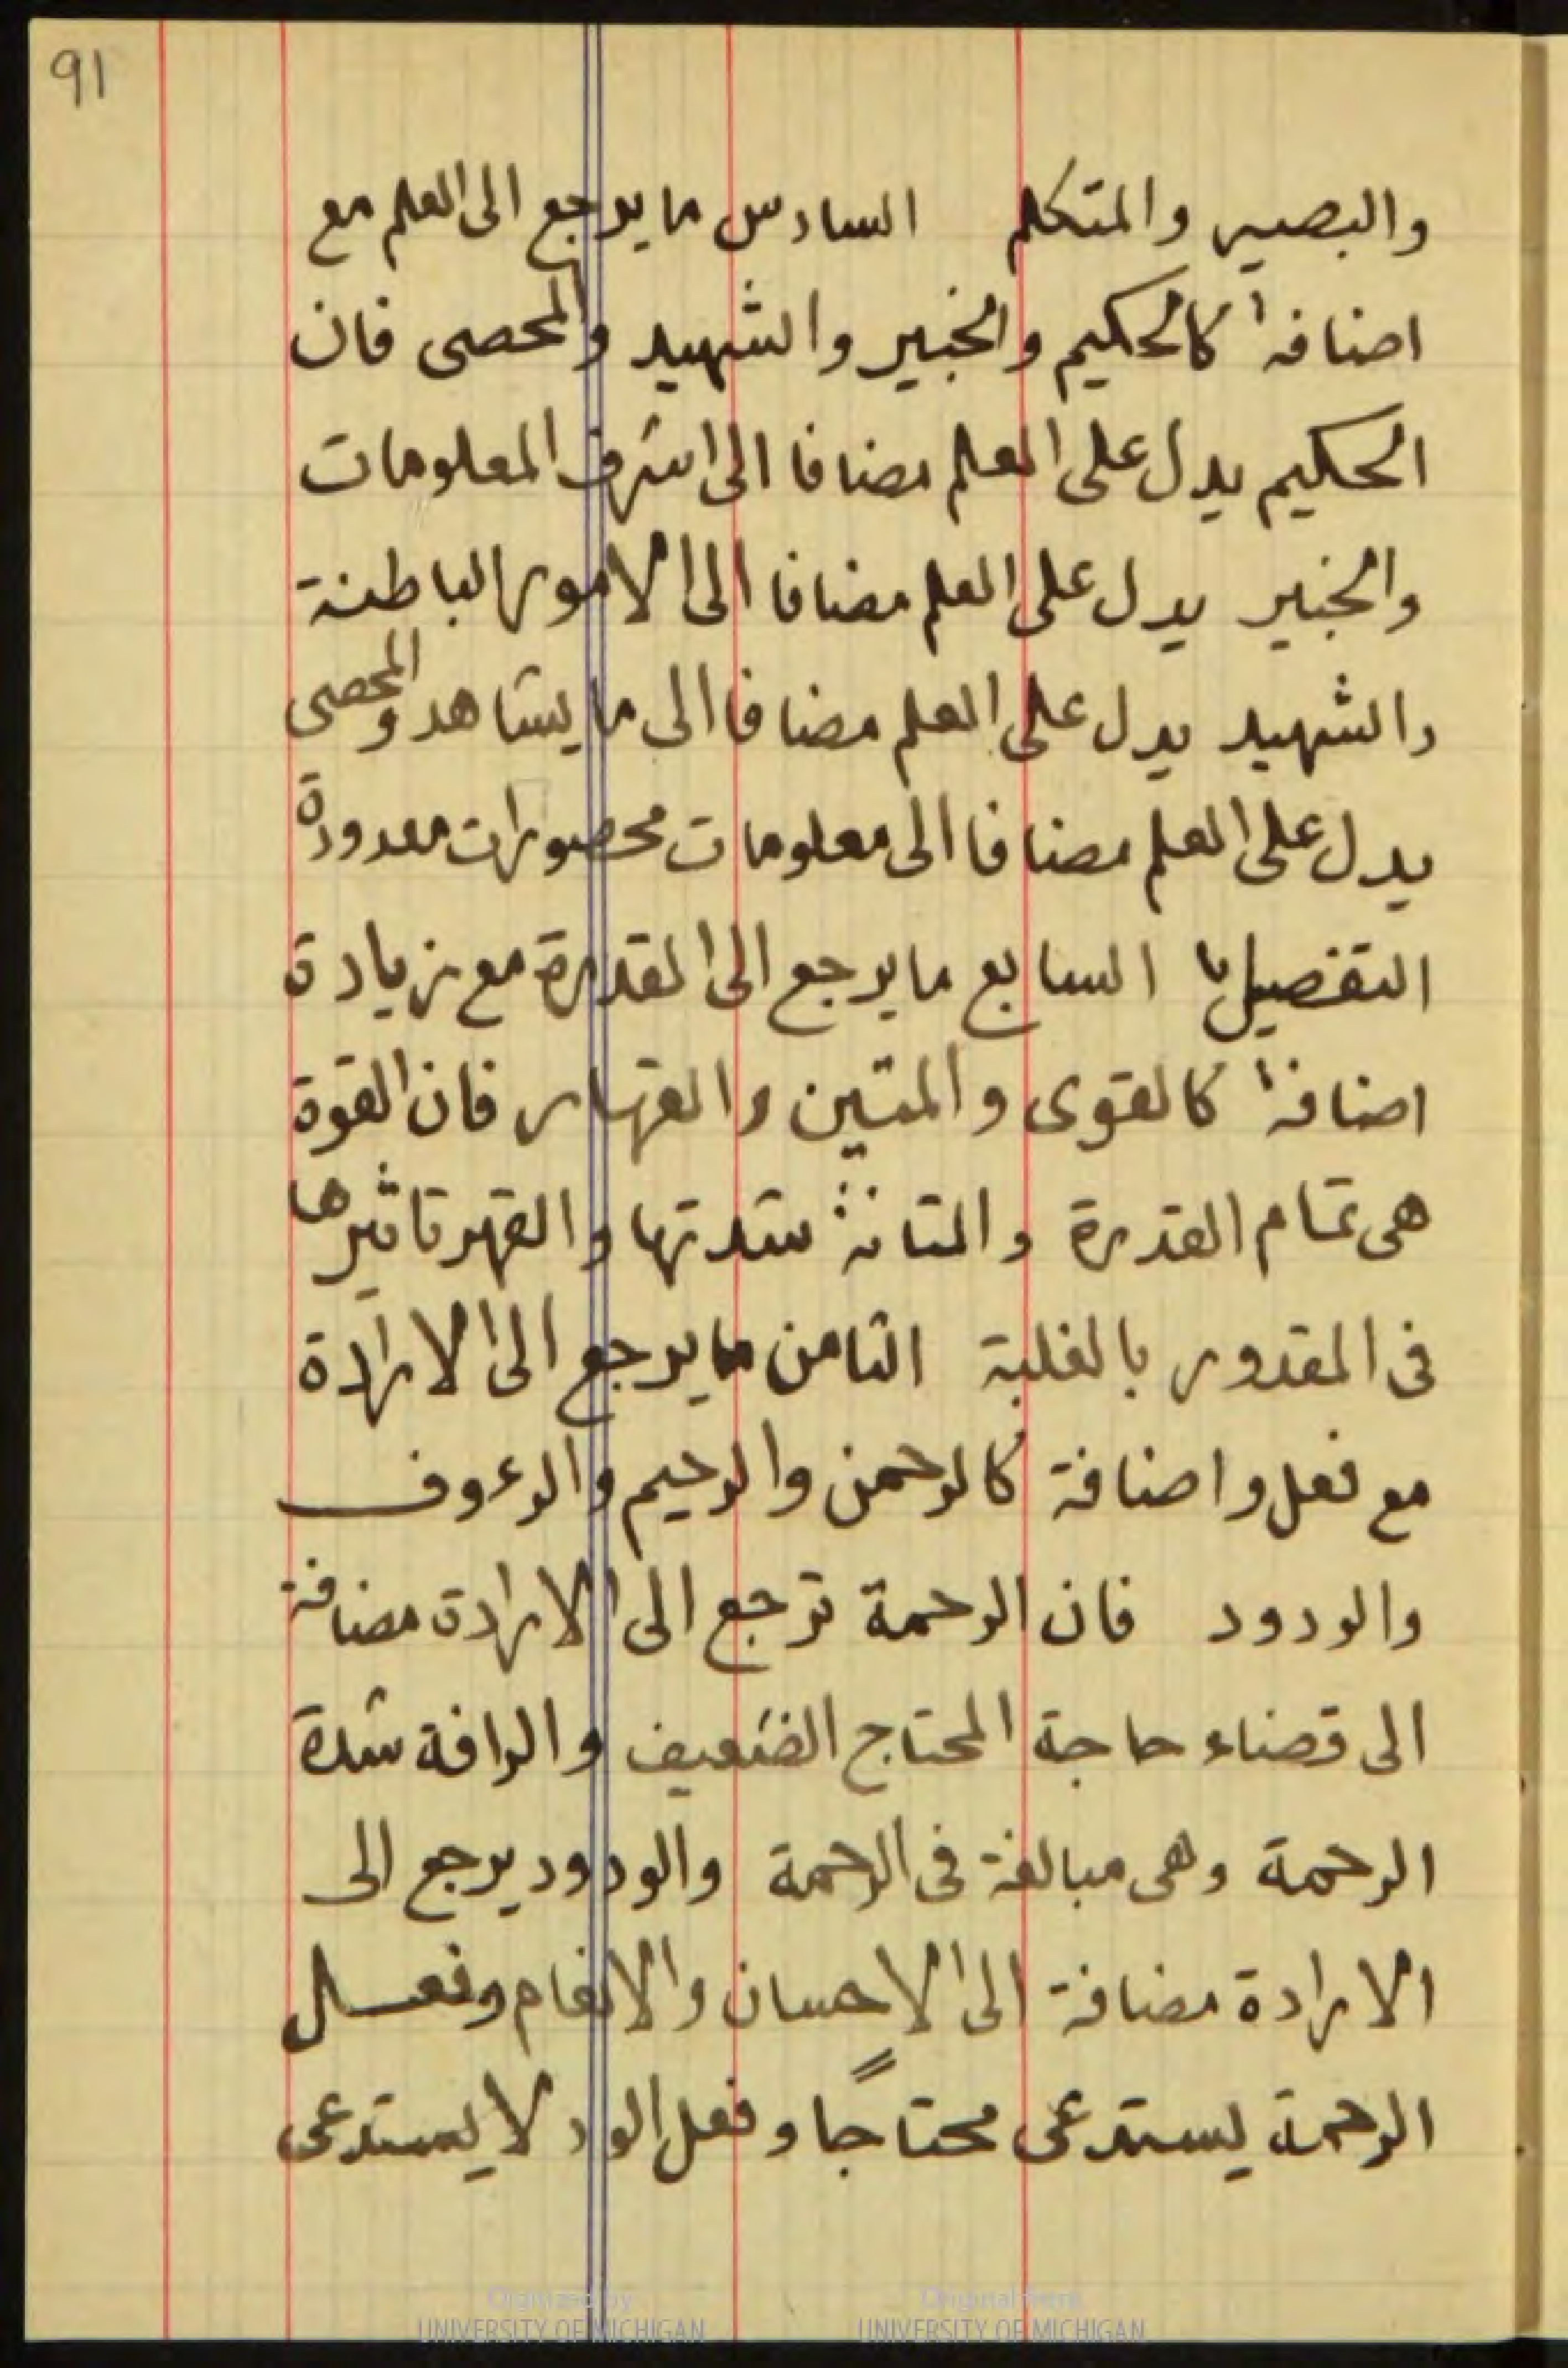 91
والبصير والمتكلم السادس ما يرجع الى العلم مع
اضافة كالحكيم والخبير والشهيد والمحصى فان
الحكيم يدل على العلم مضافا الى اشرف المعلومات
والخبير يدل على العلم مضافا الى الامور الباطنة
والشهيد يدل على العلم مضافا الى ما يشاهد والمحصى
يدل على العلم مضافا الى معلومات محصورات معدودة
التفصيل السابع ما يرجع الى القدرة مع زيادة
اضافة كالقوى والمتين والقهار فان القوة
هى تمام القدرة والمتانة شدتها والقهر تاثيرها
فى المقدور بالغلبة الثامن ما يرجع الى الارادة
مع فعل واضافة كالرحمن والرحيم والرءوف
والودود فان الرحمة ترجع الى الارادة مضافة
الى قضاء حاجة المحتاج الضعيف والرافة شدة
الرحمة وهى مبالغة فى الرحمة والودود يرجع الى
الارادة مضافة الى الاحسان والانعام وفعل
الرحمة يستدعى محتاجًا وفعل الود لا يستدعى
Digitized by
UNIVERSITY OF MICHIGAN
Original from
UNIVERSITY OF MICHIGAN